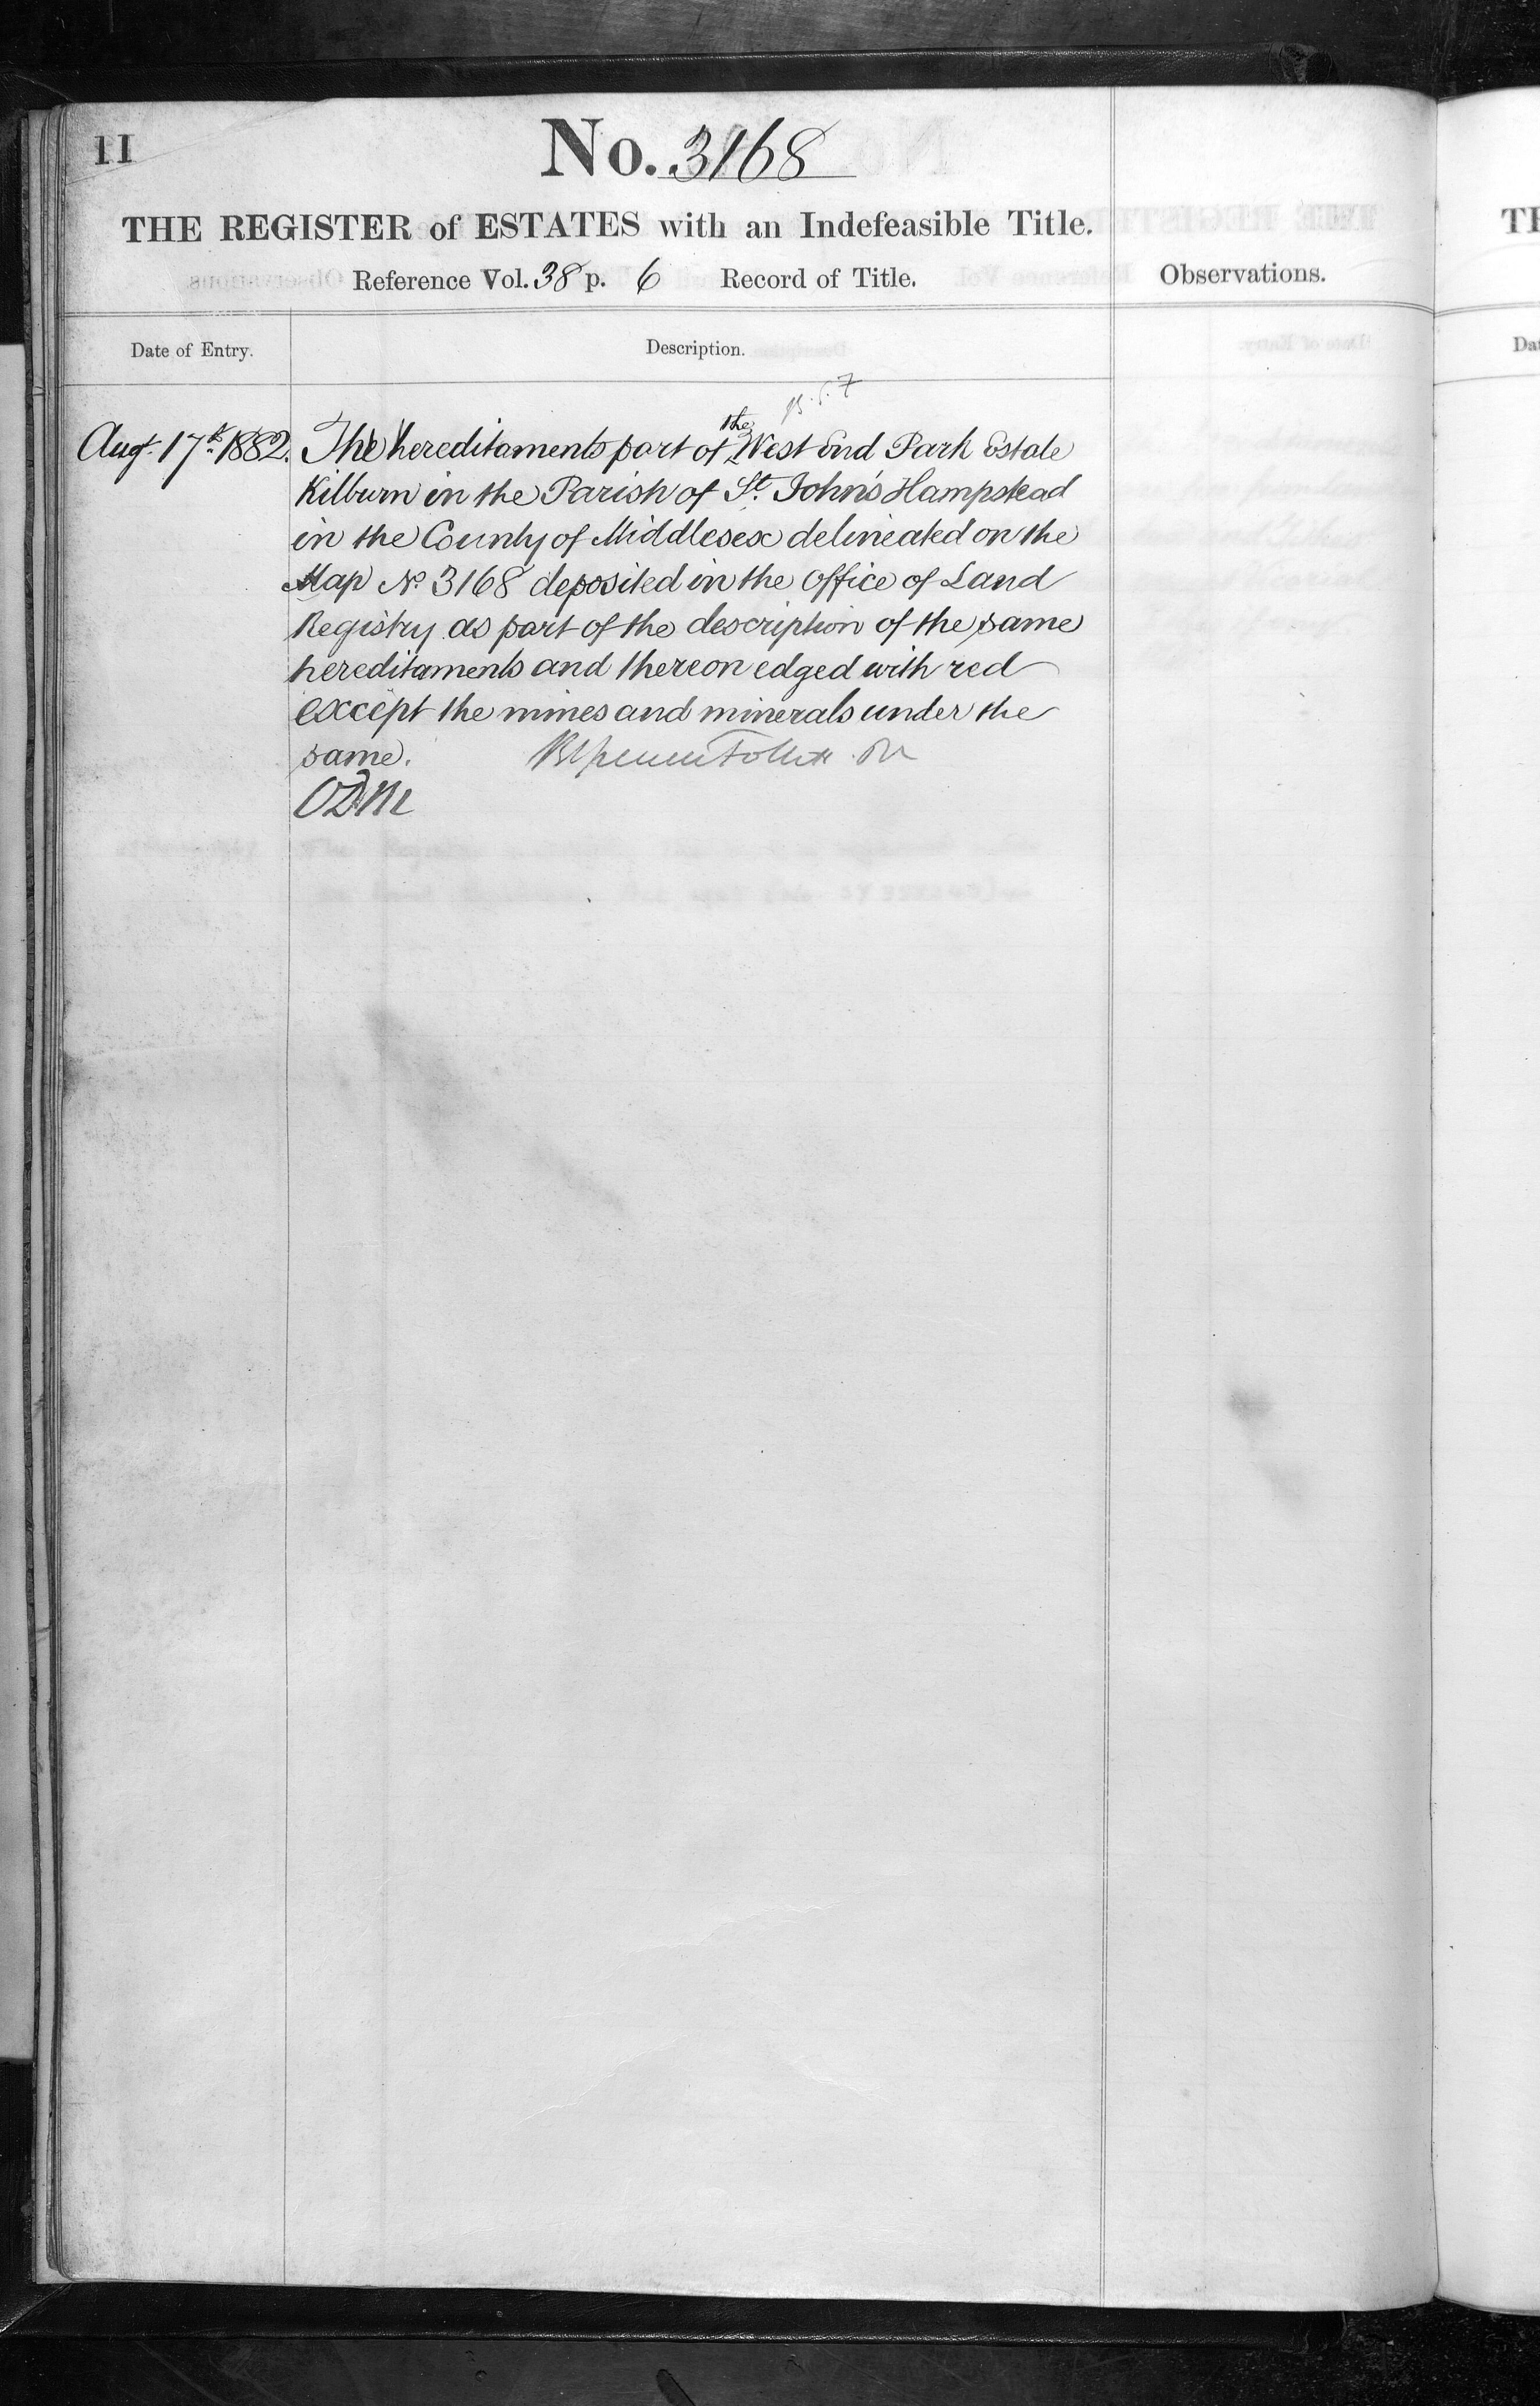 11
No. 3168
THE REGISTER of ESTATES with an Indefeasible Title.
Reference Vol. 38 p. 6 Record of Title.
Observations.
Date of Entry.
Description.
Augt. 17th 1882. The hereditaments part of the West End Park Estate
Kilburn in the Parish of St. John's Hampstead
in the County of Middlesex delineated on the
Map No. 3168 deposited in the Office of Land
Registry as part of the description of the same
hereditaments and thereon edged with red
except the mines and minerals under the
same.